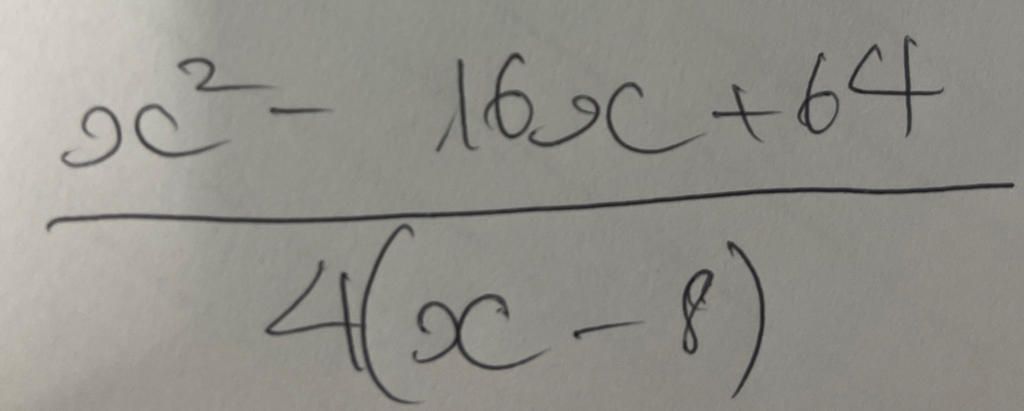 x² - 16x + 64
4(x - 8)